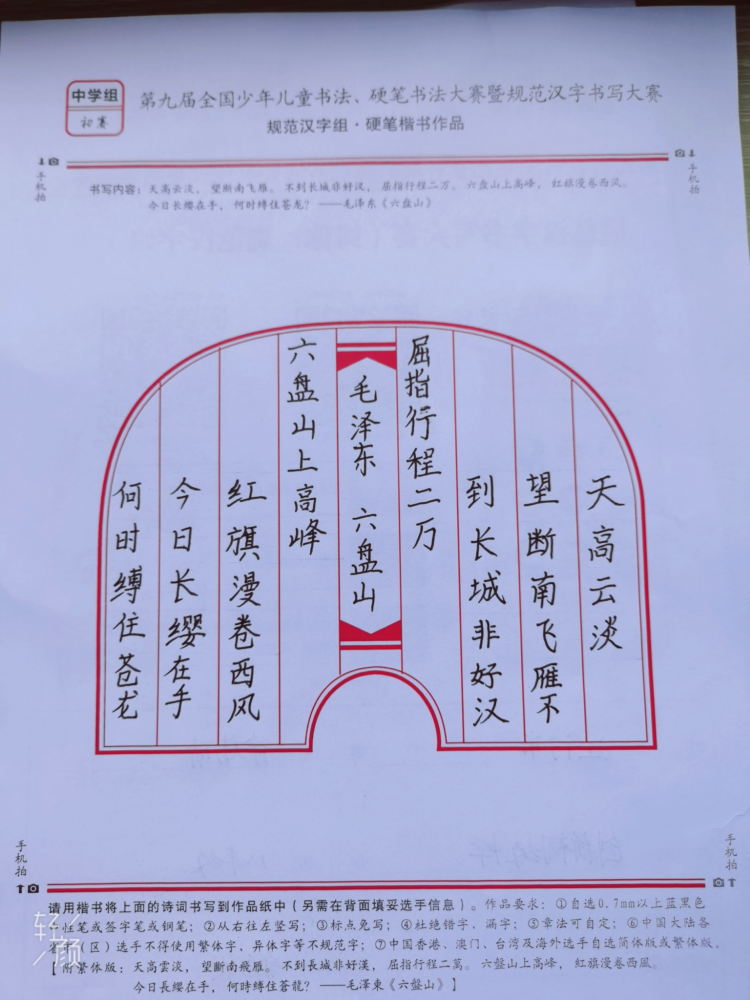 中学组
初赛
第九届全国少年儿童书法、硬笔书法大赛暨规范汉字书写大赛
规范汉字组·硬笔楷书作品
手机拍
手机拍
书写内容：天高云淡，望断南飞雁。不到长城非好汉，屈指行程二万。六盘山上高峰，红旗漫卷西风。
今日长缨在手，何时缚住苍龙？——毛泽东《六盘山》
天高云淡
望断南飞雁不
到长城非好汉
屈指行程二万
毛泽东 六盘山
六盘山上高峰
红旗漫卷西风
今日长缨在手
何时缚住苍龙
手机拍
手机拍
请用楷书将上面的诗词书写到作品纸中（另需在背面填妥选手信息）。作品要求：①自选0.7mm以上蓝黑色
性笔或签字笔或钢笔；②从右往左竖写；③标点免写；④杜绝错字、漏字；⑤章法可自定；⑥中国大陆各
（区）选手不得使用繁体字、异体字等不规范字；⑦中国香港、澳门、台湾及海外选手自选简体版或繁体版。
【附繁体版：天高雲淡，望斷南飛雁。不到長城非好漢，屈指行程二萬。六盤山上高峰，紅旗漫卷西風。
今日長纓在手，何時縛住蒼龍？——毛澤東《六盤山》】
轻颜